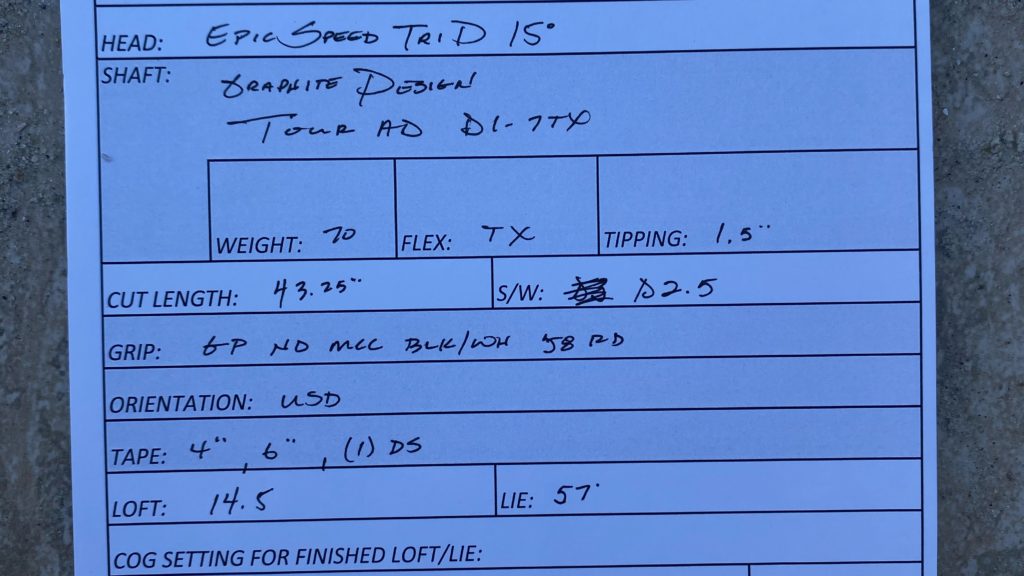 HEAD: EPIC SPEED TRI D 15°
SHAFT: GRAPHITE DESIGN
TOUR AD DI-7TX
WEIGHT: 70 FLEX: TX TIPPING: 1.5"
CUT LENGTH: 43.25" S/W: D2.5
GRIP: GP ND MCC BLK/WH 58 RD
ORIENTATION: USD
TAPE: 4", 6", (1) DS
LOFT: 14.5 LIE: 57°
COG SETTING FOR FINISHED LOFT/LIE: